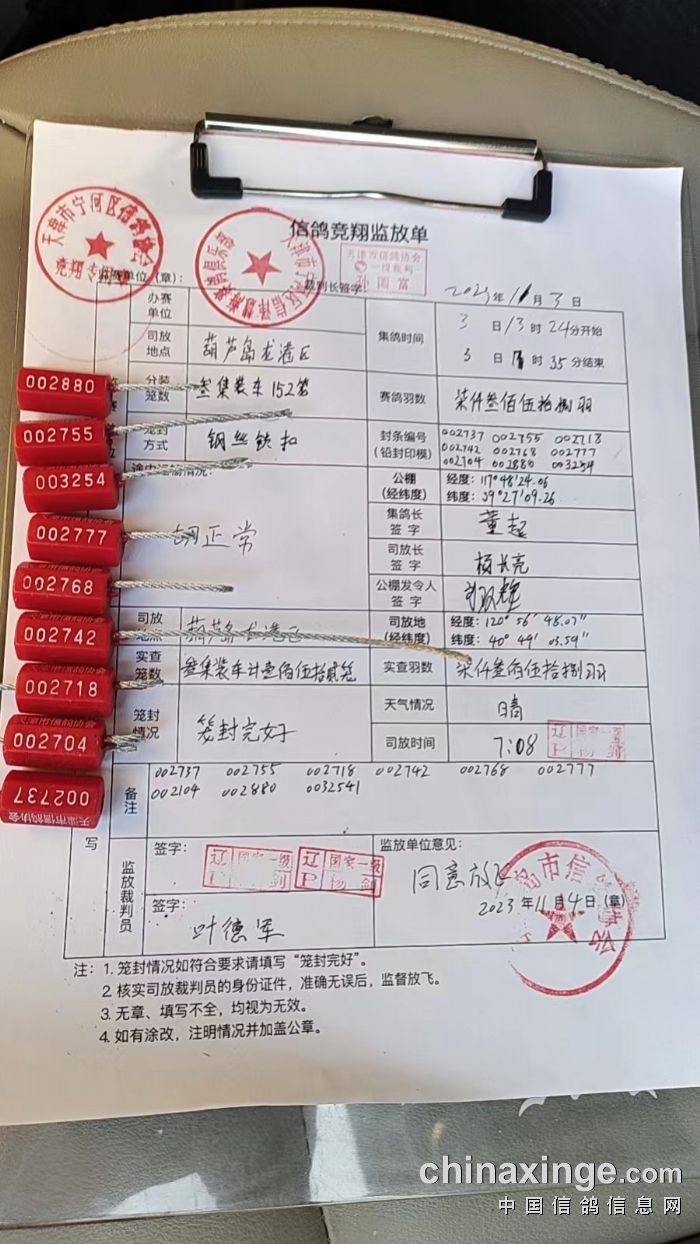 信鸽竞翔监放单
天津市宁河区信鸽协会
竞翔专用章
天津市信鸽协会
一级裁判
孙国富
监赛单位（章）：
裁判长签字：
2023年11月3日
办赛单位
司放地点
葫芦岛龙港区
集鸽时间
3日13时24分开始
3日 时35分结束
分装笼数
叁集装车152笼
赛鸽羽数
柒仟叁佰伍拾捌羽
笼封方式
钢丝锁扣
封条编号（铅封印模）
002737 002755 002718
002742 002768 002777
002704 002880 003254
途中运输情况：
正常
公棚（经纬度）
经度：117°48'24.06
纬度：39°27'09.26
集鸽长签字
董超
司放长签字
杨长亮
公棚发令人签字
司放地点
葫芦岛龙港区
司放地（经纬度）
经度：120°56'48.07"
纬度：40°49'03.59"
实查笼数
叁集装车计壹佰伍拾贰笼
实查羽数
柒仟叁佰伍拾捌羽
笼封情况
笼封完好
天气情况
晴
司放时间
7:08
备注
002737 002755 002718 002742 002768 002777
002104 002880 0032541
写
监放裁判员
签字：
辽 国家一级
P 杨剑
签字：
叶德军
监放单位意见：
同意放飞
2023年11月4日（章）
注：1. 笼封情况如符合要求请填写“笼封完好”。
2. 核实司放裁判员的身份证件，准确无误后，监督放飞。
3. 无章、填写不全，均视为无效。
4. 如有涂改，注明情况并加盖公章。
002880
002755
003254
002777
002768
002742
002718
002704
002737
天津市信鸽协会
chinaxinge.com
中国信鸽信息网